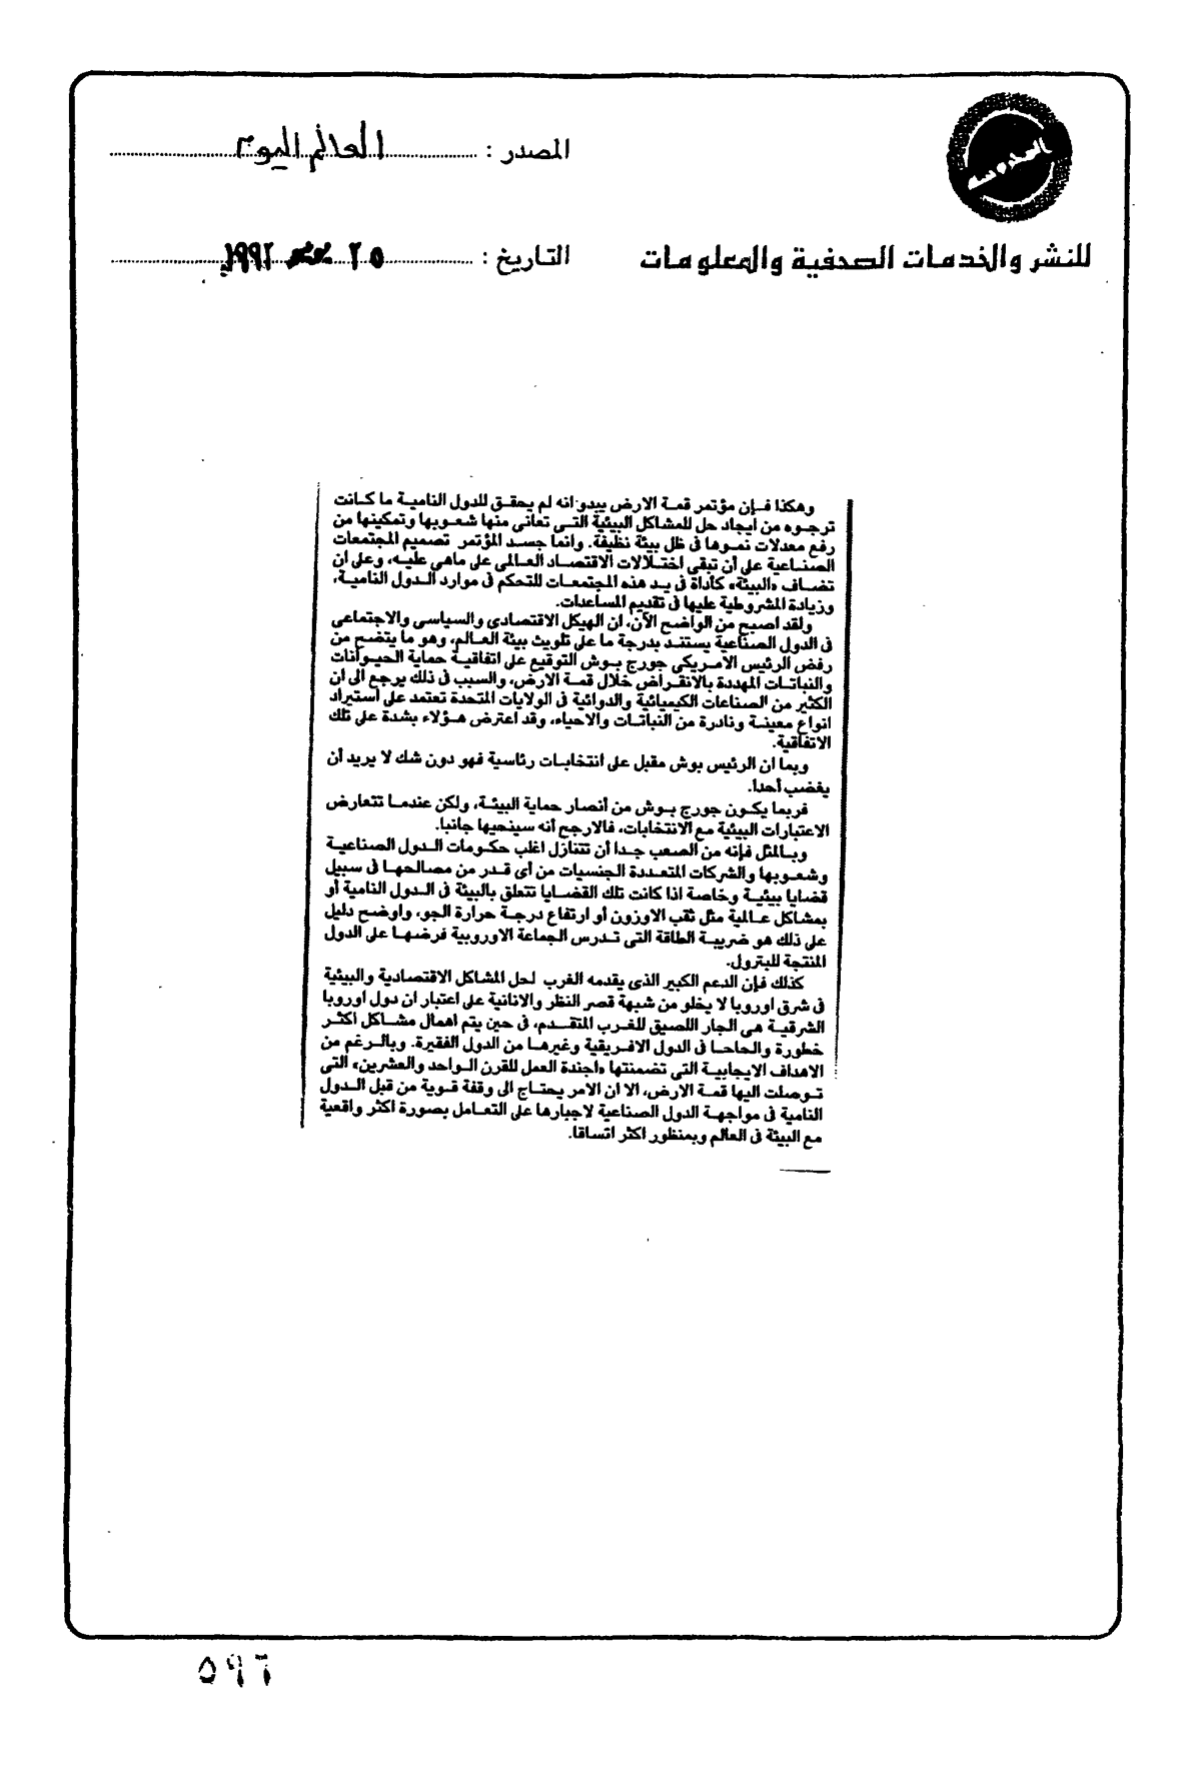 المصدر : العالم اليوم
للنشر والخدمات الصحفية والمعلومات
التاريخ : ٢٥ يونيو ١٩٩٢
وهكذا فإن مؤتمر قمة الارض يبدو انه لم يحقق للدول النامية ما كانت
ترجوه من ايجاد حل للمشاكل البيئية التى تعانى منها شعوبها وتمكينها من
رفع معدلات نموها فى ظل بيئة نظيفة. وانما جسد المؤتمر تصميم المجتمعات
الصناعية على أن تبقى اختلالات الاقتصاد العالمى على ماهى عليه، وعلى ان
تضاف «البيئة» كأداة فى يد هذه المجتمعات للتحكم فى موارد الدول النامية،
وزيادة المشروطية عليها فى تقديم المساعدات.
ولقد اصبح من الواضح الآن، ان الهيكل الاقتصادى والسياسى والاجتماعى
فى الدول الصناعية يستند بدرجة ما على تلويث بيئة العالم، وهو ما يتضح من
رفض الرئيس الامريكى جورج بوش التوقيع على اتفاقية حماية الحيوانات
والنباتات المهددة بالانقراض خلال قمة الارض، والسبب فى ذلك يرجع الى ان
الكثير من الصناعات الكيميائية والدوائية فى الولايات المتحدة تعتمد على استيراد
انواع معينة ونادرة من النباتات والاحياء، وقد اعترض هؤلاء بشدة على تلك
الاتفاقية.
وبما ان الرئيس بوش مقبل على انتخابات رئاسية فهو دون شك لا يريد أن
يغضب أحدا.
فربما يكون جورج بوش من أنصار حماية البيئة، ولكن عندما تتعارض
الاعتبارات البيئية مع الانتخابات، فالارجح أنه سينحيها جانبا.
وبالمثل فإنه من الصعب جدا أن تتنازل اغلب حكومات الدول الصناعية
وشعوبها والشركات المتعددة الجنسيات من أى قدر من مصالحها فى سبيل
قضايا بيئية وخاصة اذا كانت تلك القضايا تتعلق بالبيئة فى الدول النامية أو
بمشاكل عالمية مثل ثقب الاوزون أو ارتفاع درجة حرارة الجو، واوضح دليل
على ذلك هو ضريبة الطاقة التى تدرس الجماعة الاوروبية فرضها على الدول
المنتجة للبترول.
كذلك فإن الدعم الكبير الذى يقدمه الغرب لحل المشاكل الاقتصادية والبيئية
فى شرق اوروبا لا يخلو من شبهة قصر النظر والانانية على اعتبار ان دول اوروبا
الشرقية هى الجار اللصيق للغرب المتقدم، فى حين يتم اهمال مشاكل اكثر
خطورة والحاحا فى الدول الافريقية وغيرها من الدول الفقيرة. وبالرغم من
الاهداف الايجابية التى تضمنتها «اجندة العمل للقرن الواحد والعشرين» التى
توصلت اليها قمة الارض، الا ان الامر يحتاج الى وقفة قوية من قبل الدول
النامية فى مواجهة الدول الصناعية لاجبارها على التعامل بصورة اكثر واقعية
مع البيئة فى العالم وبمنظور اكثر اتساقا.
٥٩٦